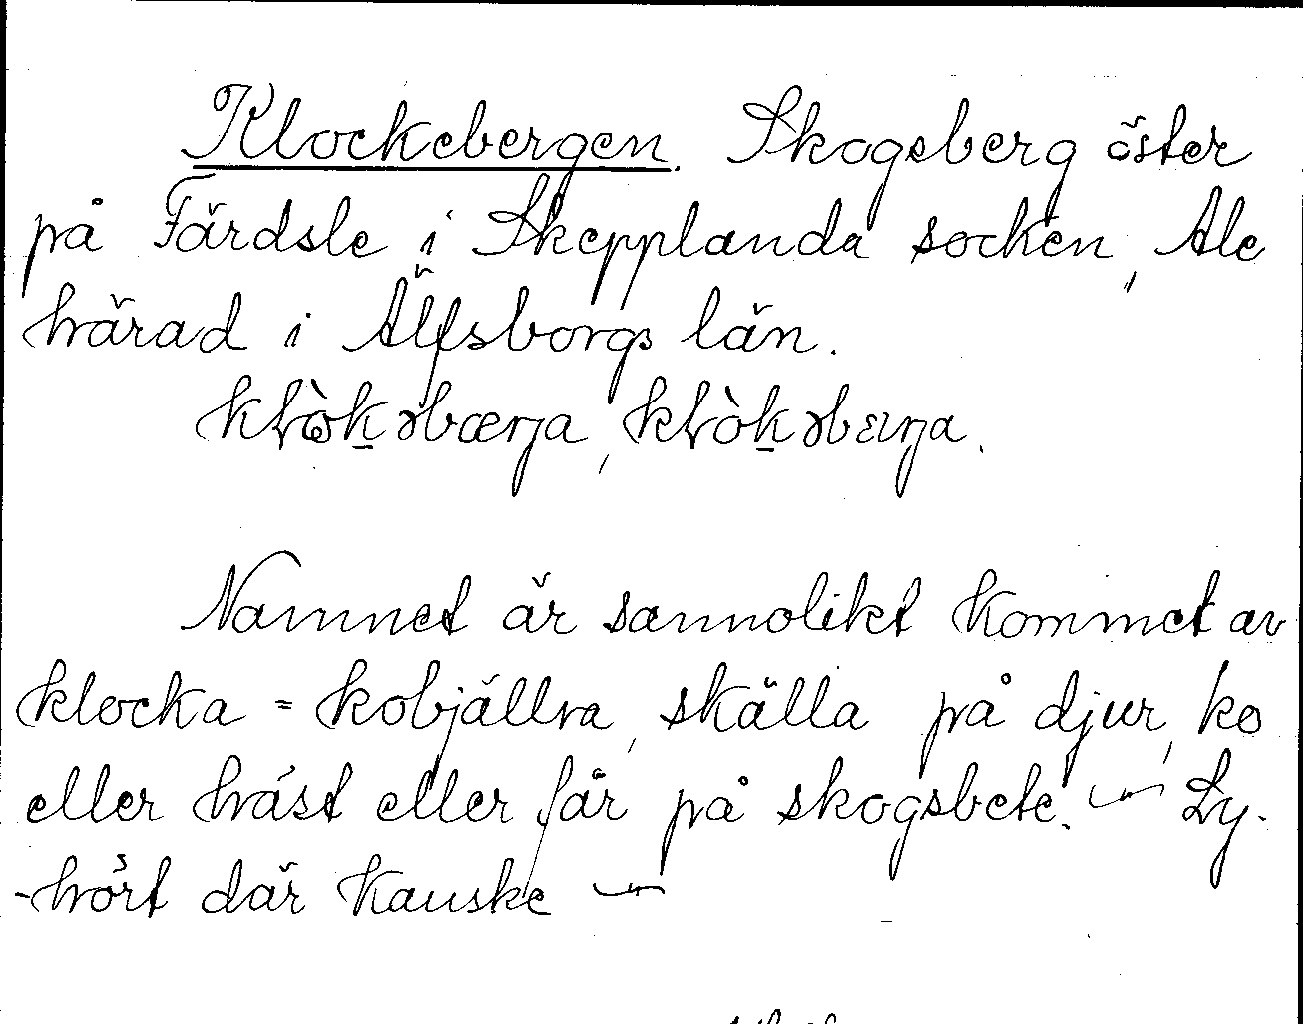 Klockebergen. Skogsberg öster
på Färdsle i Skepplanda socken, Ale
härad i Älfsborgs län.
Namnet är sannolikt kommet av
klocka = kobjällra, skälla på djur, ko
eller häst eller får på skogsbete. — Ly-
-hört där kanske —